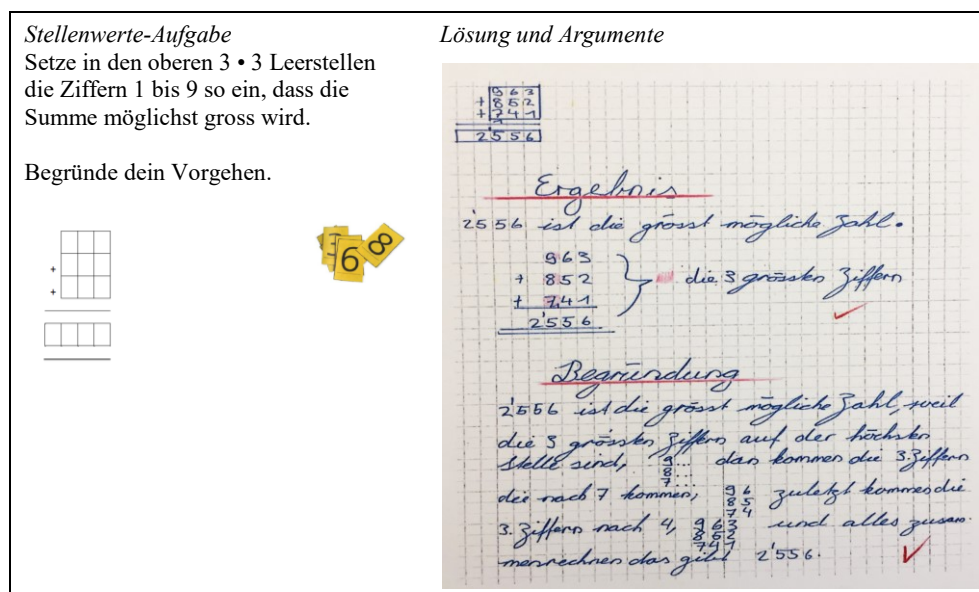 Stellenwerte-Aufgabe
Setze in den oberen 3 • 3 Leerstellen
die Ziffern 1 bis 9 so ein, dass die
Summe möglichst gross wird.
Begründe dein Vorgehen.
+
+
3 6 8
Lösung und Argumente
963
+ 852
+ 741
2556
Ergebnis
2'556 ist die grösst mögliche Zahl.
963
+ 852 die 3 grössten Ziffern
+ 741
2'556
Begründung
2'556 ist die grösst mögliche Zahl, weil
die 3 grössten Ziffern auf der höchsten
Stelle sind, 9.. 8.. 7.. dan kommen die 3. Ziffern
die nach 7 kommen, 96 85 74 zuletzt kommen die
3. Ziffern nach 4, 963 852 741 und alles zusam-
menrechnen das gibt 2'556.